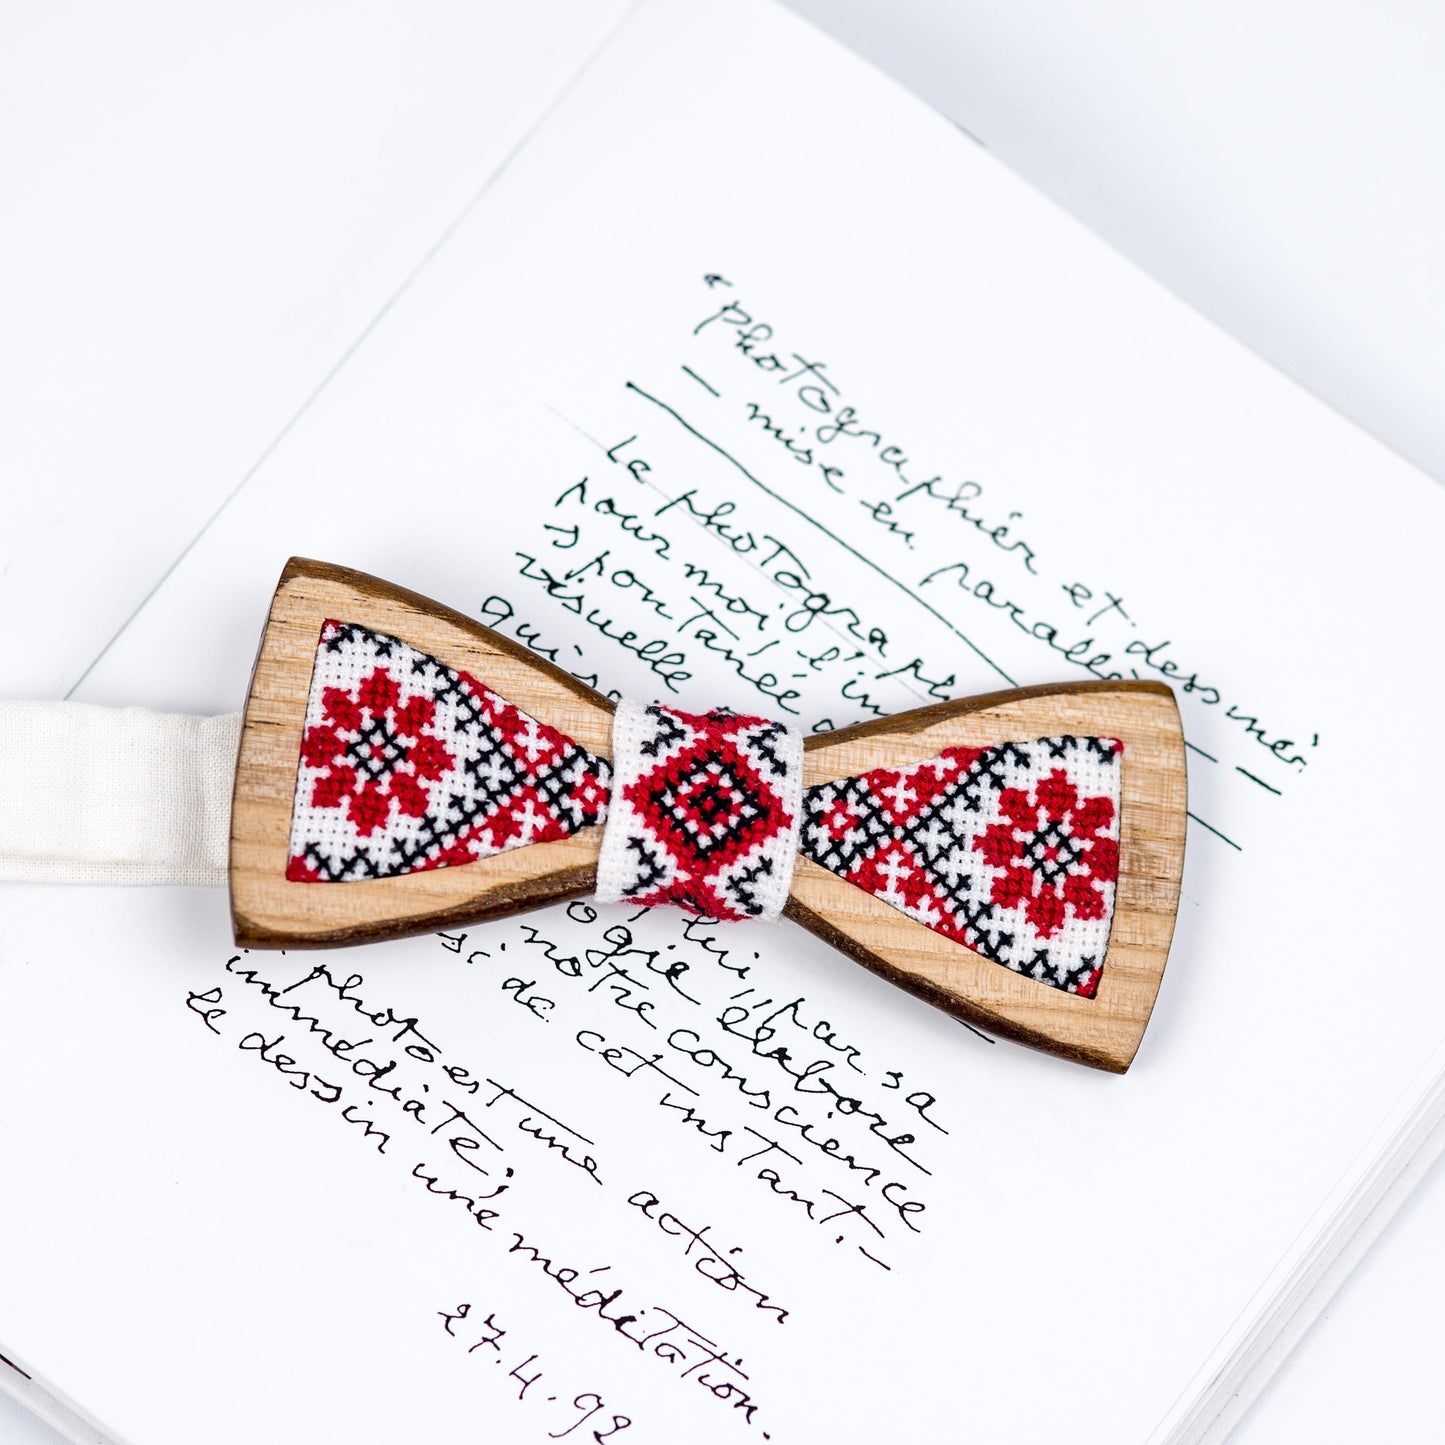 "photographier et dessiner
— mise en parallèle —
La photogra
pour moi, l'im
spontanée
visuelle
qui
lui, par sa
ogie, élabore
notre conscience
si de cet instant. —
photo est une action
immédiate;
le dessin une méditation.
27.4.92